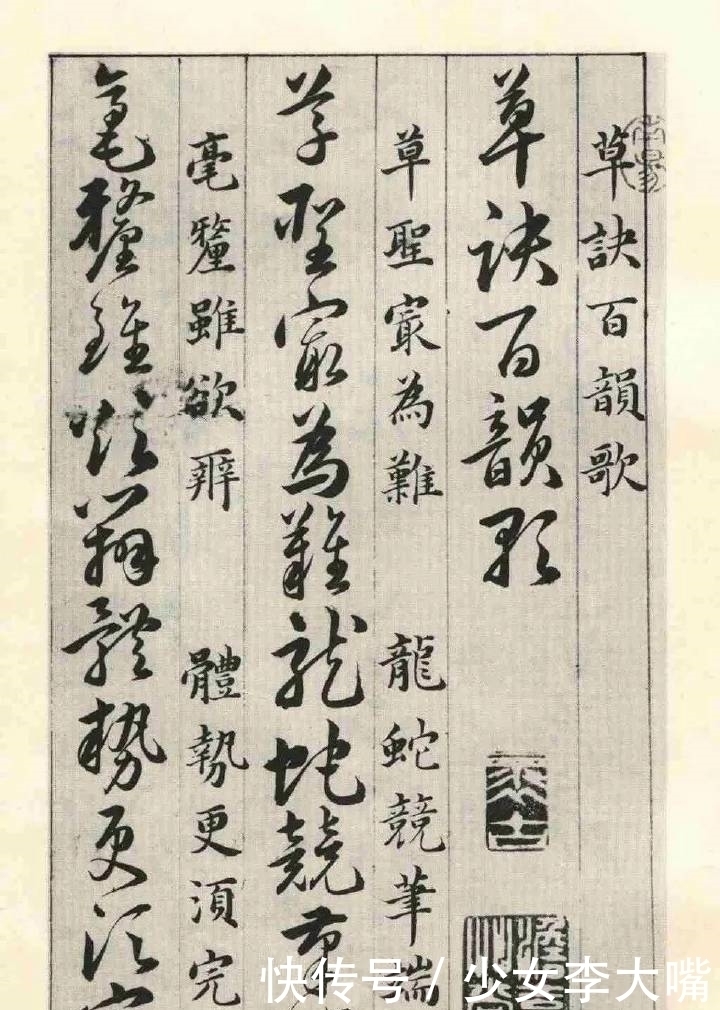 草訣百韻歌
草訣百韻歌
草聖寂為難 龍蛇競筆端
草聖寂為難龍蛇競筆
毫釐雖欲辨 體勢更須完
毫釐雖欲辨體勢更須完
快传号 / 少女李大嘴